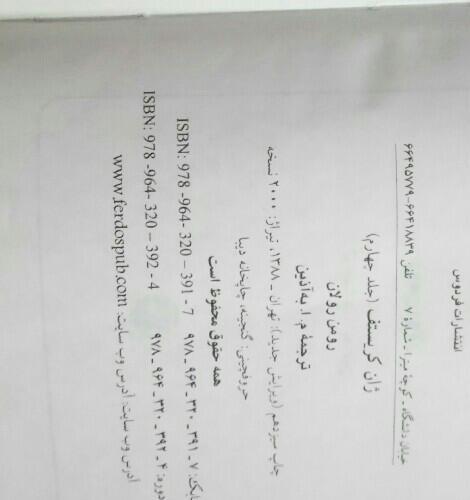 انتشارات فردوس
خیابان دانشگاه - کوچهٔ میترا - شمارهٔ ۷ تلفن ۶۶۴۱۸۸۳۹-۶۶۴۹۵۷۷۹
ژان کریستف (جلد چهارم)
رومن رولان
ترجمهٔ م.ا. به‌آذین
چاپ سیزدهم (ویرایش جدید): تهران - ۱۳۸۸، تیراژ: ۲۰۰۰ نسخه
حروفچینی: گنجینه، چاپخانه دیبا
همه حقوق محفوظ است
شابک: ۷ - ۳۹۱ - ۳۲۰ - ۹۶۴ - ۹۷۸ ISBN: 978 -964- 320 -391 - 7
دوره: ۴ - ۳۹۲ - ۳۲۰ - ۹۶۴ - ۹۷۸ ISBN: 978 -964- 320 - 392 - 4
آدرس وب سایت: آدرس وب سایت: www.ferdospub.com